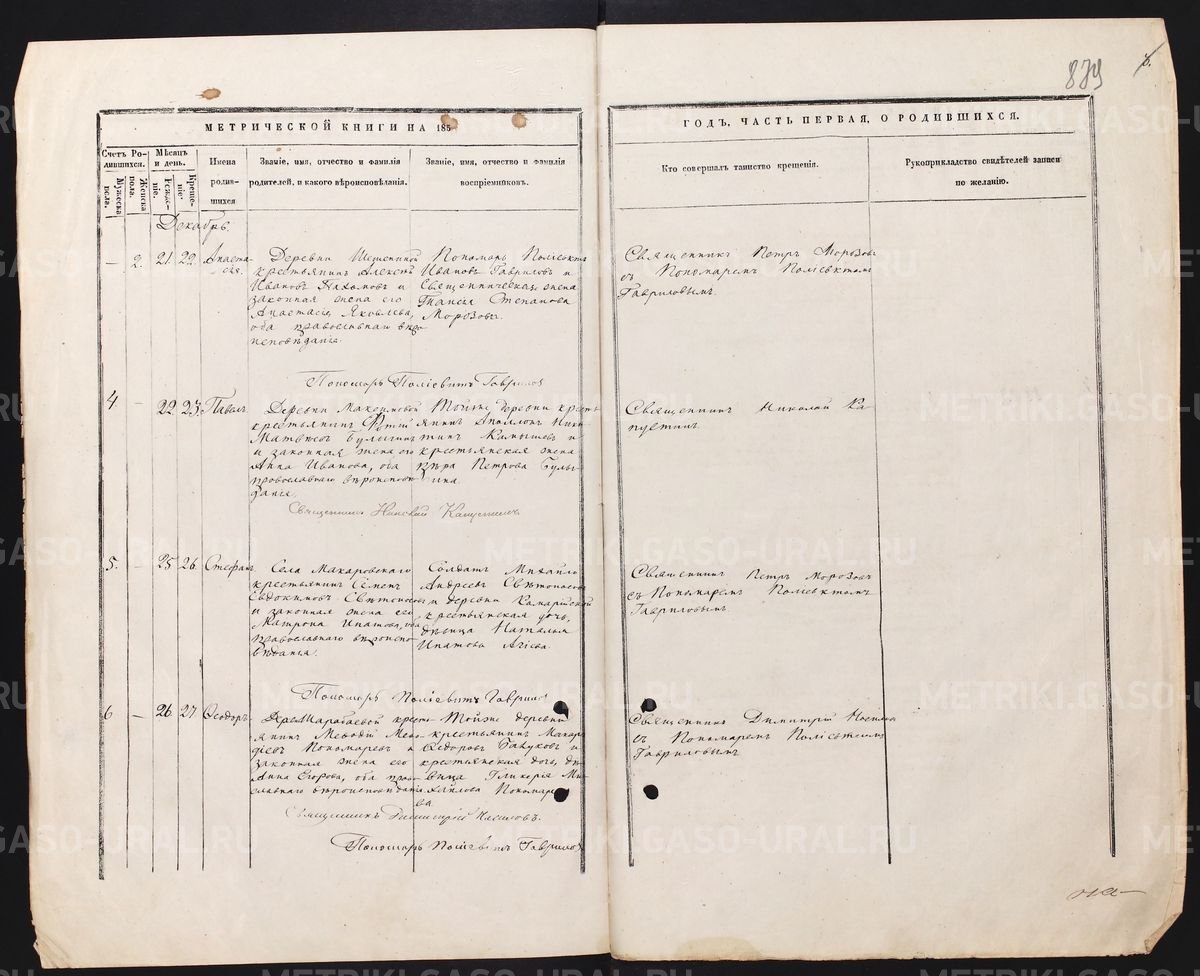 879
МЕТРИЧЕСКОЙ КНИГИ НА 185
ГОДЪ, ЧАСТЬ ПЕРВАЯ, О РОДИВШИХСЯ.
Счетъ Родившихся.
Мужеска пола.
Женска пола.
Мѣсяцъ и день.
Рожденіе.
Крещеніе.
Имена родившихся
Званіе, имя, отчество и фамилія родителей, и какого вѣроисповѣданія.
Званіе, имя, отчество и фамилія воспріемниковъ.
Кто совершалъ таинство крещенія.
Рукоприкладство свидѣтелей записи по желанію.
Декабрь.
— 2. 21. 22. Анаста-
сія.
Деревни
крестьянинъ Алексѣй
Ивановъ Пахомовъ и
законная жена его
Анастасія Яковлева,
оба православнаго вѣро
исповѣданія.
Пономарь Поліевктъ
Ивановъ Гавриловъ и
Священническая жена
Степанова
Морозова.
Священникъ Петръ Морозовъ
съ Пономаремъ Поліевктомъ
Гавриловымъ.
Пономарь Поліевктъ Гавриловъ
4 — 22 23. Павелъ.
Деревни Максимовой
крестьянинъ Фотій
Матвѣевъ Булыгинъ
и законная жена его
Анна Иванова, оба
православнаго вѣроисповѣ
данія.
Тойже деревни кресть
янинъ Аполлонъ Ники
тинъ Камышевъ и
крестьянская жена
Вѣра Петрова Булы
гина.
Священникъ Николай Ка
пустинъ.
Священникъ Николай Капустинъ
5. — 25 26. Стефанъ.
Села Макаровскаго
крестьянинъ Семенъ
Евдокимовъ
и законная жена его
Матрона Ипатова, оба
православнаго вѣроиспо
вѣданія.
Солдатъ Михайло
Андреевъ
и деревни
крестьянская дочь,
дѣвица Наталья
Ипатова
Священникъ Петръ Морозовъ
съ Пономаремъ Поліевктомъ
Гавриловымъ.
Пономарь Поліевктъ Гавриловъ
6 — 26. 27. Ѳеодоръ.
крест
янинъ Меѳодій Меѳо
діевъ Пономаревъ и
законная жена его
Анна Егорова, оба право
славнаго вѣроисповѣданія
Тойже деревни
крестьянинъ Макаръ
Ѳедоровъ Бабуковъ и
крестьянская дочь, дѣ
вица Гликерія Ми
хайлова Пономаре
ва.
Священникъ Димитрій Насиловъ
съ Пономаремъ Поліевктомъ
Гавриловымъ
Священникъ Димитрій Насиловъ.
Пономарь Поліевктъ Гавриловъ
METRIKI.GASO-URAL.RU